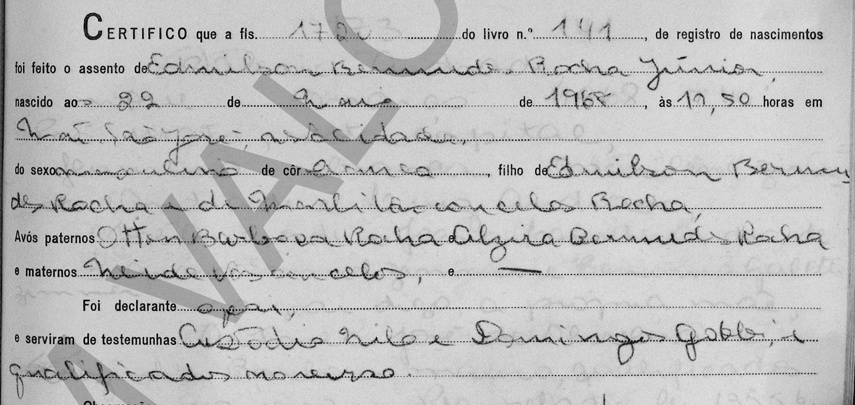 CERTIFICO que a fls. 172 do livro n.º 141, de registro de nascimentos
foi feito o assento de Edmilson Bermudes Rocha Júnior,
nascido aos 22 de Maio de 1968, às 17,50 horas em
São José, nesta cidade,
do sexo masculino de côr branca, filho de Edmilson Bermu
des Rocha e de Marli Vasconcelos Rocha,
Avós paternos Otton Barbosa Rocha e Alzira Bermudes Rocha
e maternos Neide Vasconcelos, e —
Foi declarante o pai,
e serviram de testemunhas Custódio Nilo e Domingos Gobbi,
qualificados no verso.
VALO